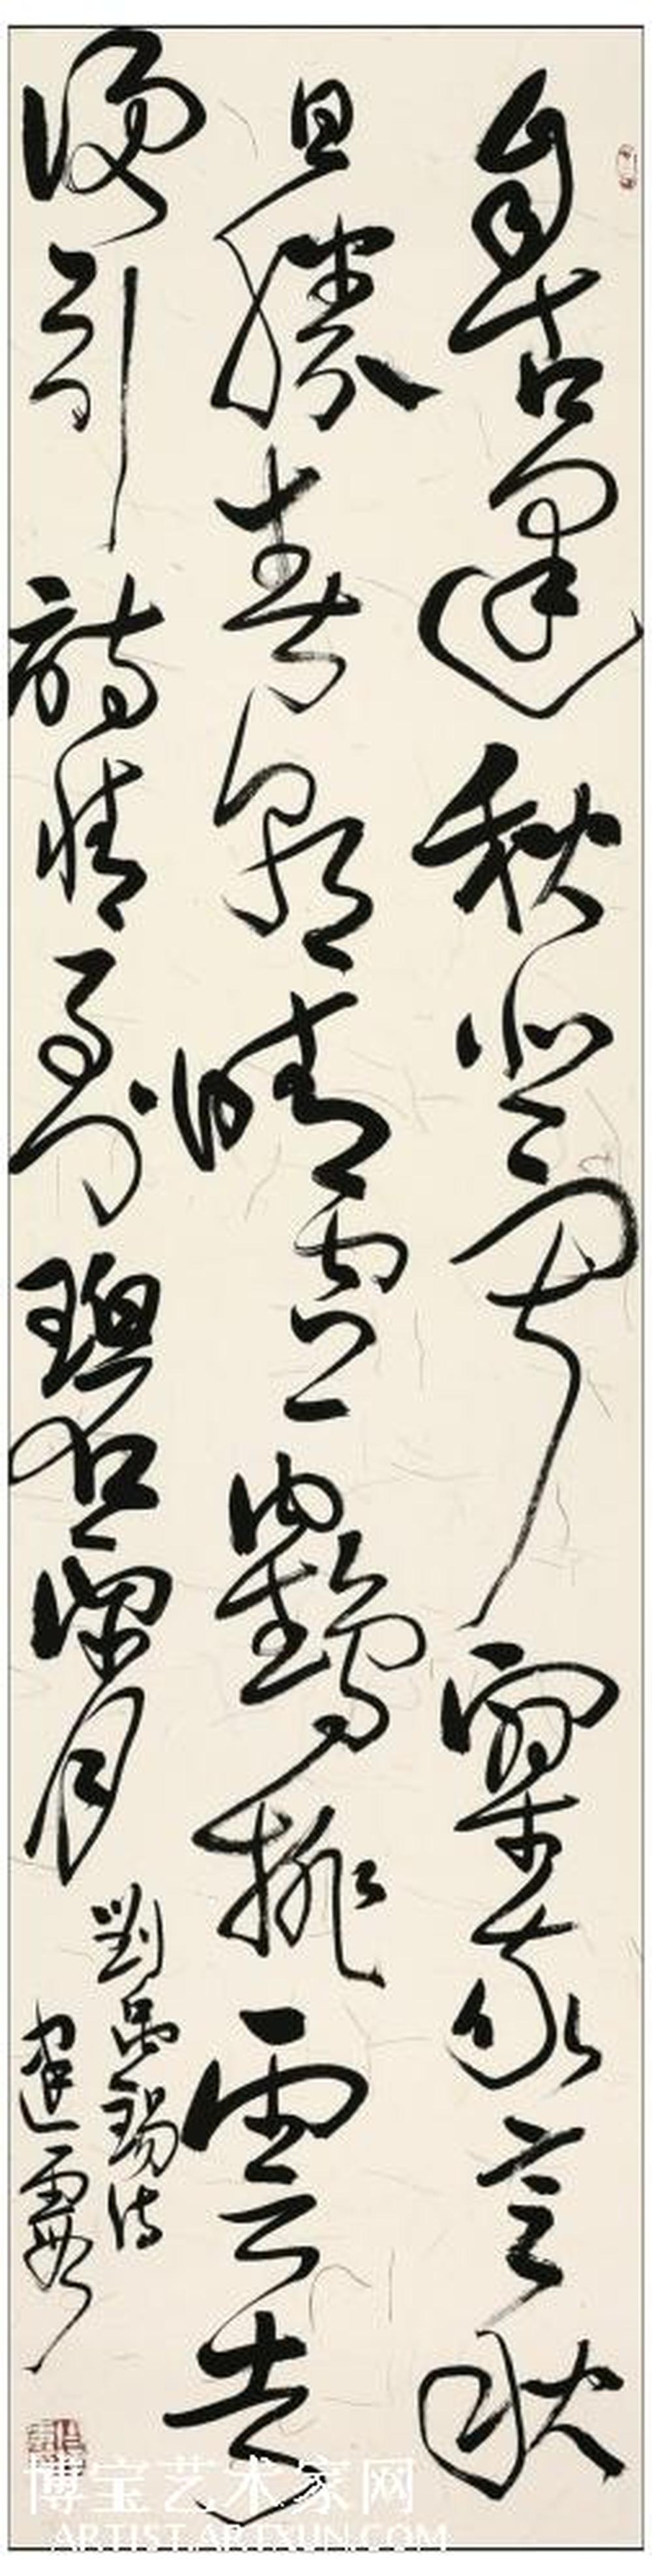 自古逢秋悲寂寥我言秋
日勝春朝晴空一鶴排雲上
便引詩情到碧霄
劉禹錫詩
建霞
博宝艺术家网
ARTIST.ARTXUN.COM